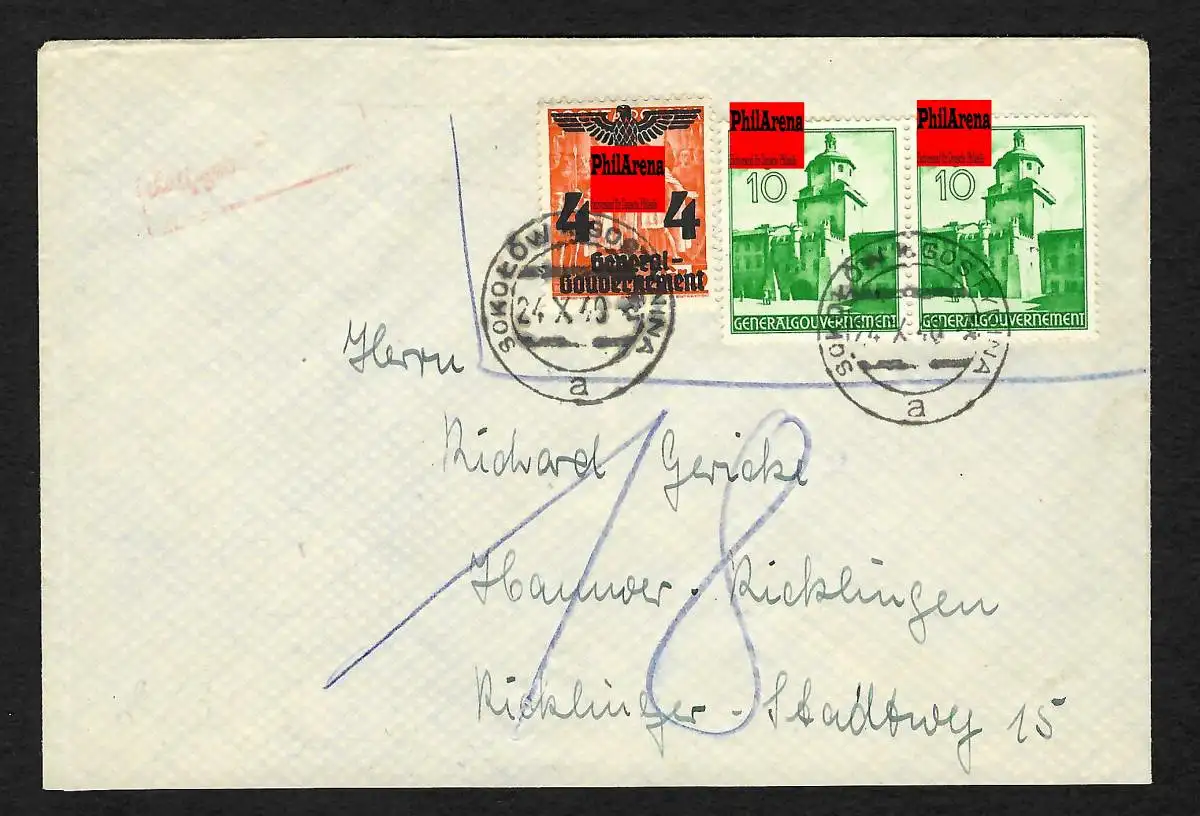 PhilArena
PhilArena
PhilArena
4 4
General-
Gouvernement
10
GENERALGOUVERNEMENT
10
GENERALGOUVERNEMENT
SOKOŁÓW
24 X 40
a
SOKOŁÓW
X 40
a
Herrn
Richard Gericke
Hannover-Ricklingen
Ricklinger-Stadtweg 15
18